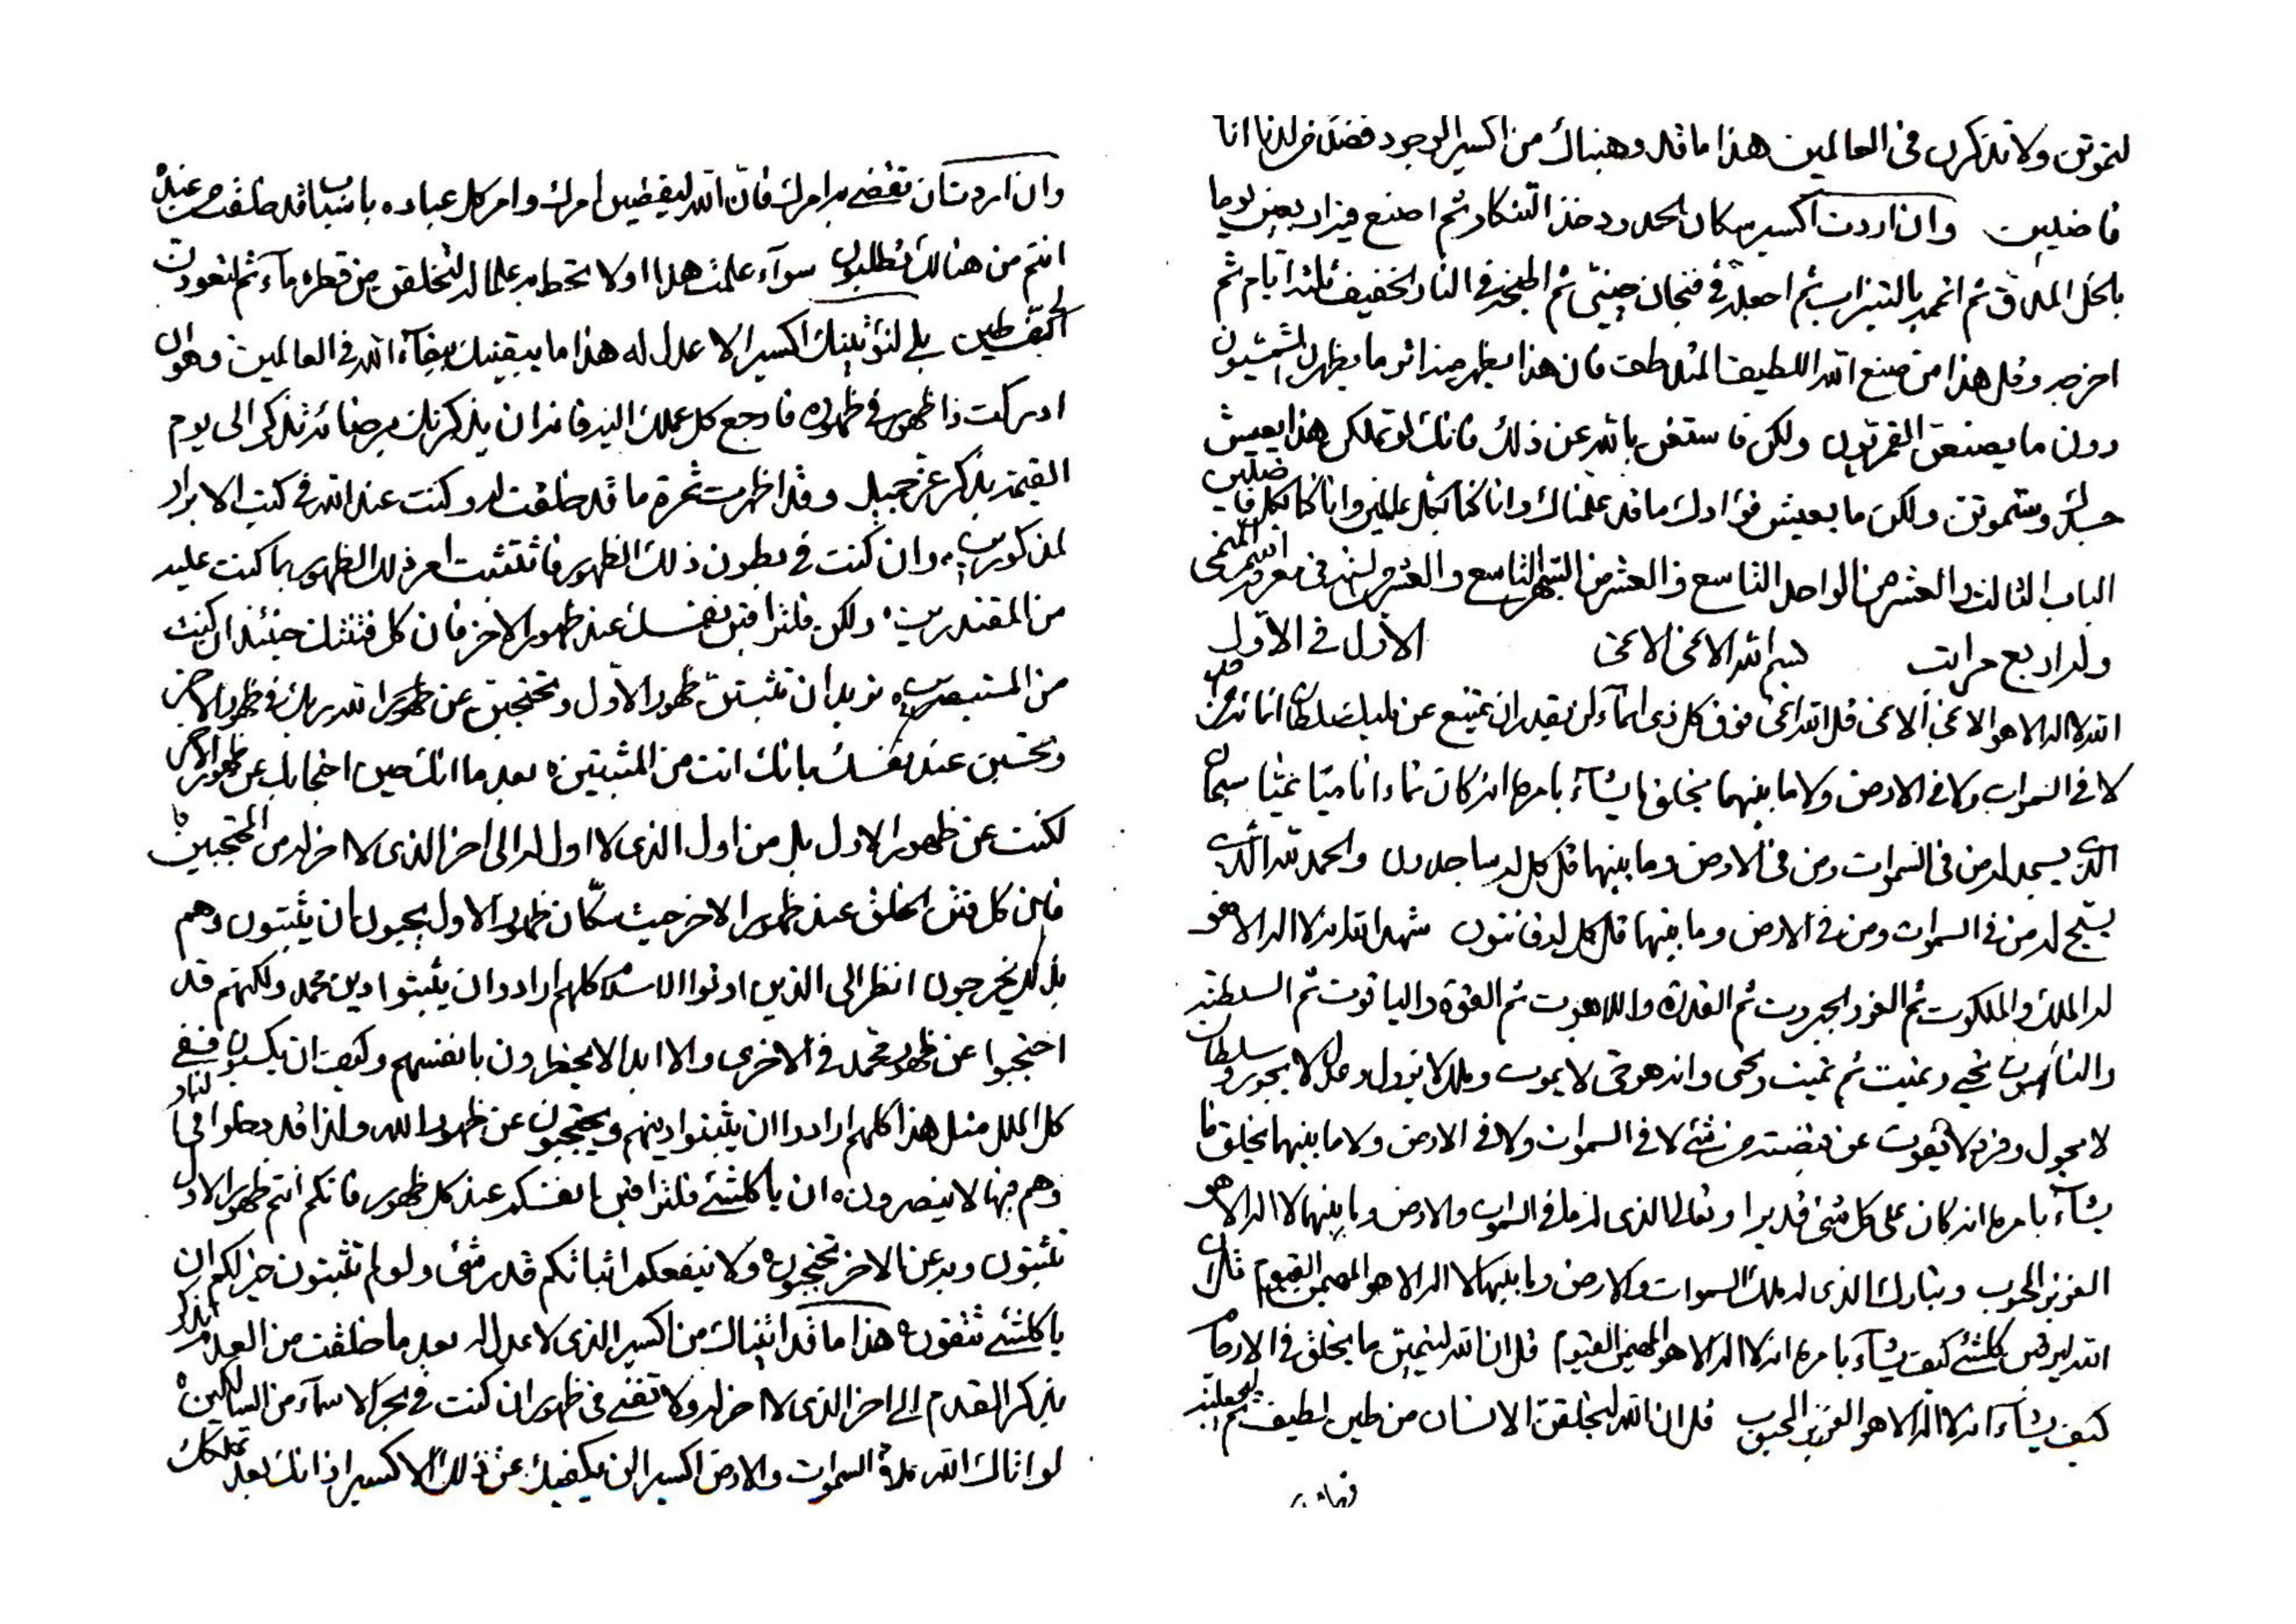 لتموتن ولا تذكرن فى العالمين هذا ما قد وهبناك من اكسير الوجود فضلا من لدنا انا
فاضلين وان اردت اكسير سكان الحدود خذ التنكار ثم اصنع
بالخل ثم ثم اجعله فى فنجان صينى ثم اطبخه فى النار الخفيف ثلثة ايام ثم
اخرجه وقل هذا من صنع الله اللطيف فان هذا يظهر منه اثر ما يظهرن الشمسيون
دون ما يصنعن القمريون ولكن فاستغن بالله عن ذلك فانك لو تملكن هذا يعيش
جسدك وستموتن ولكن ما يعيش فؤادك ما قد علمناك وانا كنا بكل عالمين وانا كنا بكل فاضلين
الباب الثالث والعشر من الواحد التاسع والعشر من الشهر التاسع والعشر فى معرفة اسم
وله اربع مراتب بسم الله الاغنى الاغنى الاول فى الاول
الله لا اله الا هو الاغنى الاغنى قل الله اغنى فوق كل ذى لن يقدر ان يمتنع عن مليك سلطان من احد
لا فى السموات ولا فى الارض ولا ما بينهما يخلق ما يشآء بامره انه كان سبحان
الذى يسجد له من فى السموات ومن فى الارض وما بينهما قل كل له ساجدون والحمد لله الذى
يسبح له من فى السموات ومن فى الارض وما بينهما قل كل له قانتون شهد الله انه لا اله الا هو
له الملك والملكوت ثم العز والجبروت ثم القدرة واللاهوت ثم القوة والياقوت ثم السلطنة
والناسوت يحيى ويميت ثم يميت ويحيى وانه هو حى لا يموت وملك لا يزول وعدل لا يجور وسلطان
لا يحول وفرد لا يفوت عن قبضته من شئ لا فى السموات ولا فى الارض ولا ما بينهما يخلق ما
يشآء بامره انه كان على كل شئ قديرا وتعالى الذى له ما فى السموات والارض وما بينهما لا اله الا هو
العزيز المحبوب وتبارك الذى له ملك السموات والارض وما بينهما لا اله الا هو المهيمن القيوم
الله كلشئ كيف يشآء بامره انه لا اله الا هو المهيمن القيوم قل ان الله ما يخلق فى الارحام
كيف يشآء انه لا اله الا هو العزيز المحبوب قل ان الله ليخلقن الانسان من طين لطيف ثم ليجعلنه
وان اردت ان تقضى امرك فان الله ليقضين امرك وامر كل عباده باسباب قد خلقت من عنده
انتم من هنالك تطلبون سوآء علمت هذا او لا تحط به علما لتخلقن من قطرة مآء ثم لتعودن
بلى لنؤتينك اكسير الا عدل له هذا ما يبقينك ببقآء الله فى العالمين وهو ان
ادركت ذا ظهور فى ظهوره فارجع كل عملك اليه فانه ان يذكرنك برضائه تذكر الى يوم
القيمة بذكر عز جميل وقد اظهرت ثمرة ما قد خلقت له وكنت عند الله فى كتب الابرار
لمذكورين وان كنت فى بطون ذلك الظهور امر ذلك الظهور بما كنت عليه
من المقتدرين ولكن فلتراقبن نفسك عند ظهور الاخر فان كل فتنتك حينئذ ان كنت
من المستبصرين تريد ان تثبتن ظهور الاول وتحتجبن عن ظهور الله ربك فى ظهور الاخر
وتحسبن عند نفسك بانك انت من المثبتين بعد ما انك حين احتجابك عن ظهور الاخر
لكنت عن ظهور الاول بل من اول الذى لا اول له الى اخر الذى لا اخر له من المحتجبين
فان كل فتن الخلق عند ظهور الاخر حيث سكان ظهور الاول يحبون ان يثبتون وهم
بذلك يخرجون انظر الى الذين اوتوا الاسلام كلهم ارادوا ان يثبتوا دين محمد ولكنهم قد
احتجبوا عن ظهور محمد فى الاخرى والا ابدا لا يخطرون بانفسهم وكيف ان يكسبون ففى
كل الملل مثل هذا كلهم ارادوا ان يثبتوا دينهم ويحتجبون عن ظهور الله ولذا قد دخلوا فى النار
وهم فيها لا ينصرون ان يا كلشئ فلتراقبن انفسكم عند كل ظهور فانكم انتم ظهور الاول
تثبتون وبه عن الاخر تحتجبون ولا ينفعكم اثباتكم قدر شئ ولو لم تثبتون خير لكم ان
يا كلشئ تتقون هذا ما قد اتيناك من اكسير الذى لا عدل له بعد ما خلقت من العدم
بذكر القدم الى اخر الذى لا اخر له ولا تفنى فى ظهور ان كنت فى بحر الاسمآء من السالكين
لو اتاك الله ملأ السموات والارض اكسيرا لن يكفيك عن ذلك الاكسير اذ انك بعد تملكك